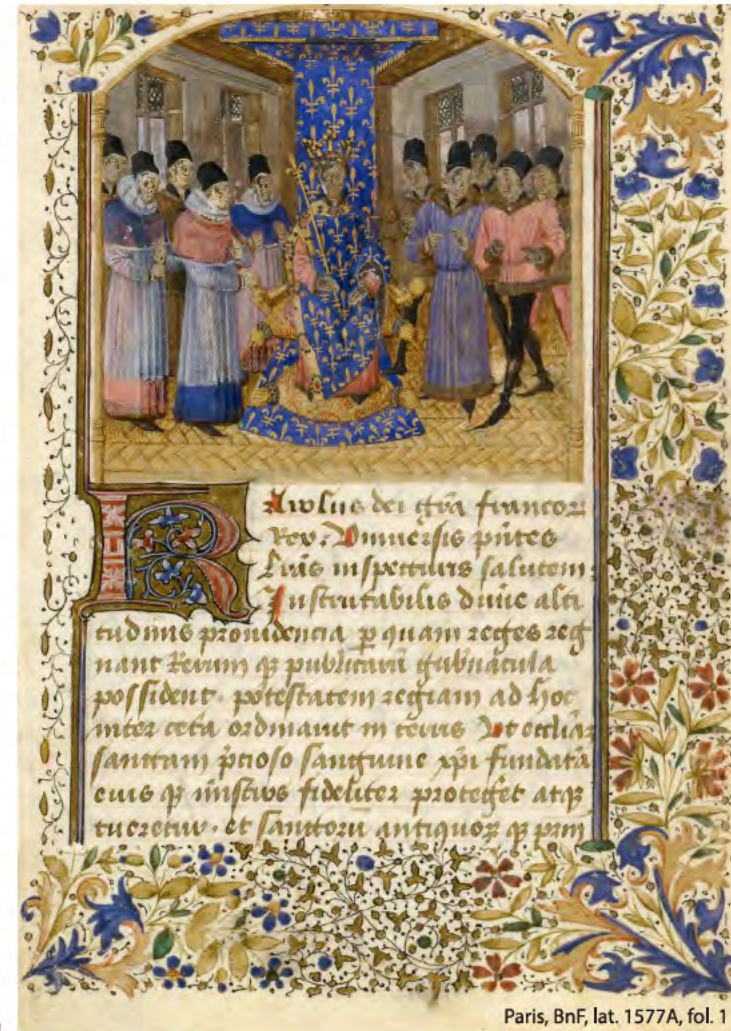 Karolus dei gr̃a francoꝝ
Rex. Vniuersis pñtes
l̃ras inspecturis salutem
Inscrutabilis diuĩe alti
tudinis prouidencia ꝑ quam reges reg
nant Rerum qꝫ publicarũ gub̃nacula
possident. potestatem regiam ad hoc
inter cet̃a ordinauit in terris Vt eccl̃iaꝫ
sanctam p̃cioso sanguine xp̃i fundatã
eius qꝫ min̄stros fideliter proteget atqꝫ
tueretur. et sanctorũ antiquoꝝ qꝫ prin
Paris, BnF, lat. 1577A, fol. 1